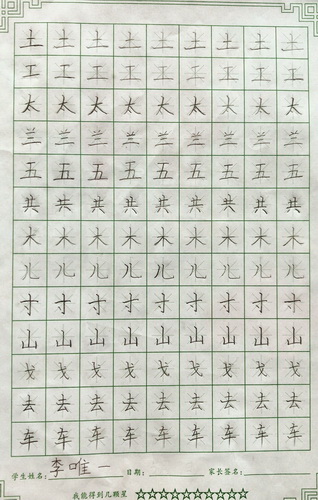 土 土 土 土 土 土 土 土 土
工 工 工 工 工 工 工 工 工
太 太 太 太 太 太 太 太 太
兰 兰 兰 兰 兰 兰 兰 兰 兰
五 五 五 五 五 五 五 五 五
共 共 共 共 共 共 共 共 共
木 木 木 木 木 木 木 木 木
儿 儿 儿 儿 儿 儿 儿 儿 儿
寸 寸 寸 寸 寸 寸 寸 寸 寸
山 山 山 山 山 山 山 山 山
戈 戈 戈 戈 戈 戈 戈 戈 戈
去 去 去 去 去 去 去 去 去
车 车 车 车 车 车 车 车 车
学生姓名: 李唯一 日期: 家长签名:
我能得到几颗星 ☆☆☆☆☆☆☆☆☆☆